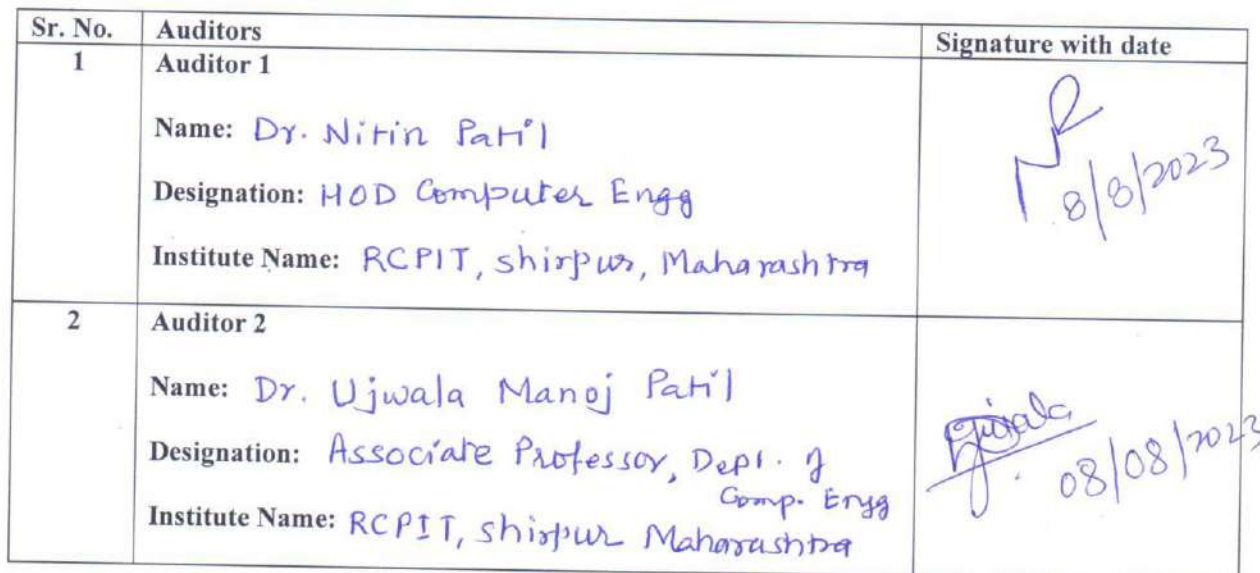 Sr. No. Auditors Signature with date
1 Auditor 1
Name: Dr. Nitin Patil
8/8/2023
Designation: HOD Computer Engg
Institute Name: RCPIT, shirpur, Maharashtra
2 Auditor 2
Name: Dr. Ujwala Manoj Patil
Designation: Associate Professor, Dept. of
Comp. Engg
08/08/2023
Institute Name: RCPIT, shirpur Maharashtra